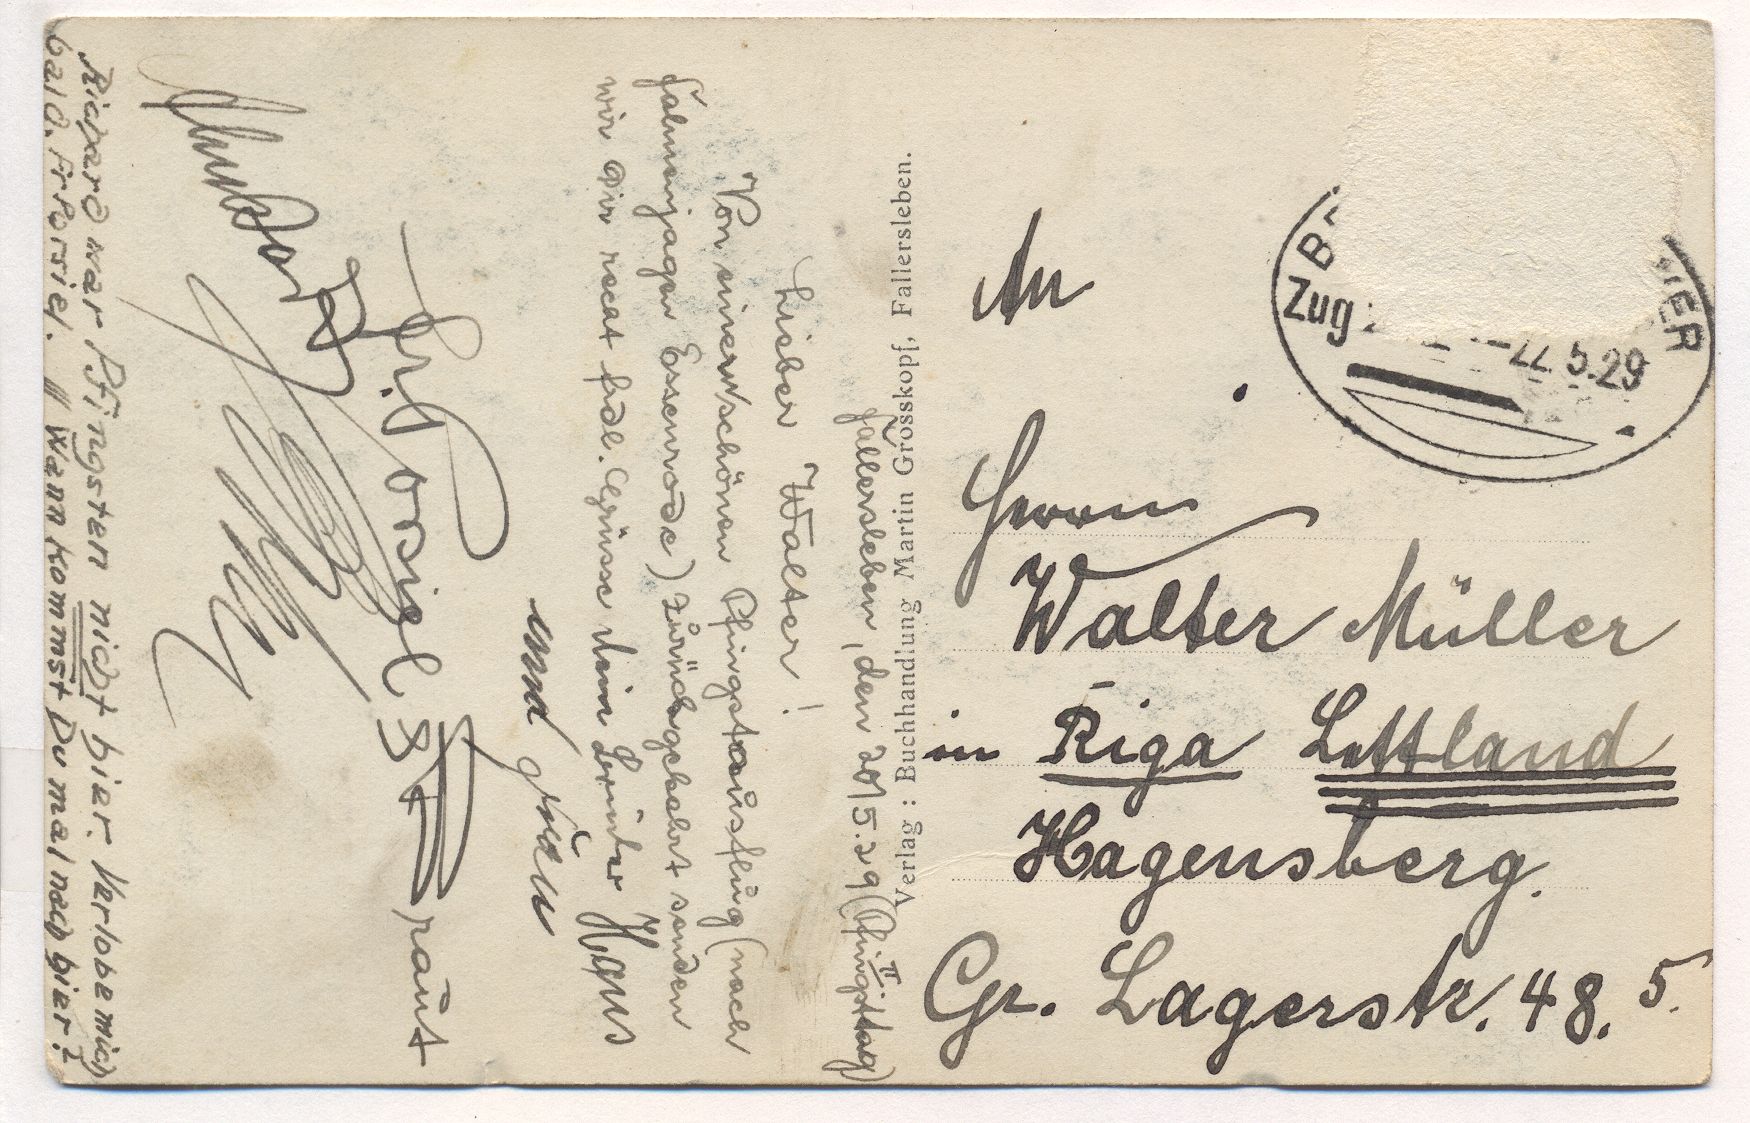 Fallersleben, den 20/5.29 (II. Pfingsttag)
Lieber Walter!
Von einem schönen Pfingstausflug (nach
Essenrode) zurückgekehrt senden
wir Dir recht frdl. Grüsse Dein Bruder Hans
und
Fr. Korsiel
Richard war Pfingsten nicht hier. Verlobe mich
bald. Fr Korsiel. // Wann kommst Du mal nach hier?
Verlag: Buchhandlung Martin Grosskopf, Fallersleben.
An
Herrn
Walter Müller
in Riga Lettland
Hagensberg.
Gr. Lagerstr. 48. 5.
Zug
22.5.29